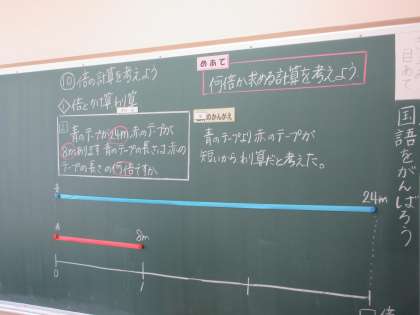 ⑩ 倍の計算を考えよう
① 倍とかけ算わり算
めあて
何倍か求める計算を考えよう。
青のテープが24m、赤のテープが
8mあります。青のテープの長さは、赤の
テープの長さの何倍ですか。
のかんがえ
青のテープより赤のテープが
短いからわり算だと考えた。
24m
8m
0
1
□倍
目あて
国語をがんばろう